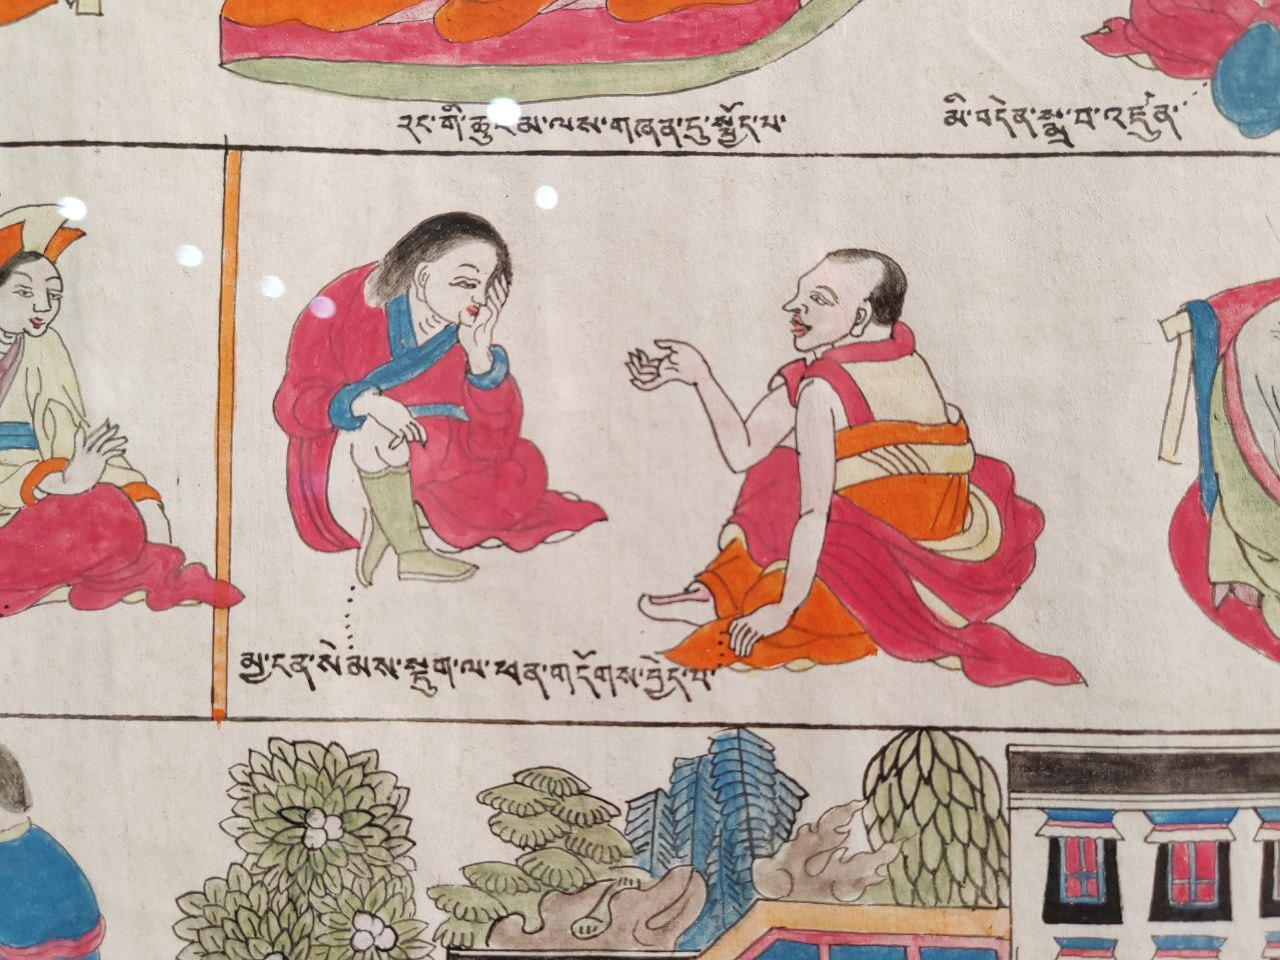 རང་གི་ཆུང་མ་ལས་གཞན་དུ་སྦྱོད་པ་
མི་བདེན་སྨྲ་བ་འཛུན་
མྱ་ངན་སེམས་སྡུག་ལ་ཕན་གདོགས་བྱེད་པ་